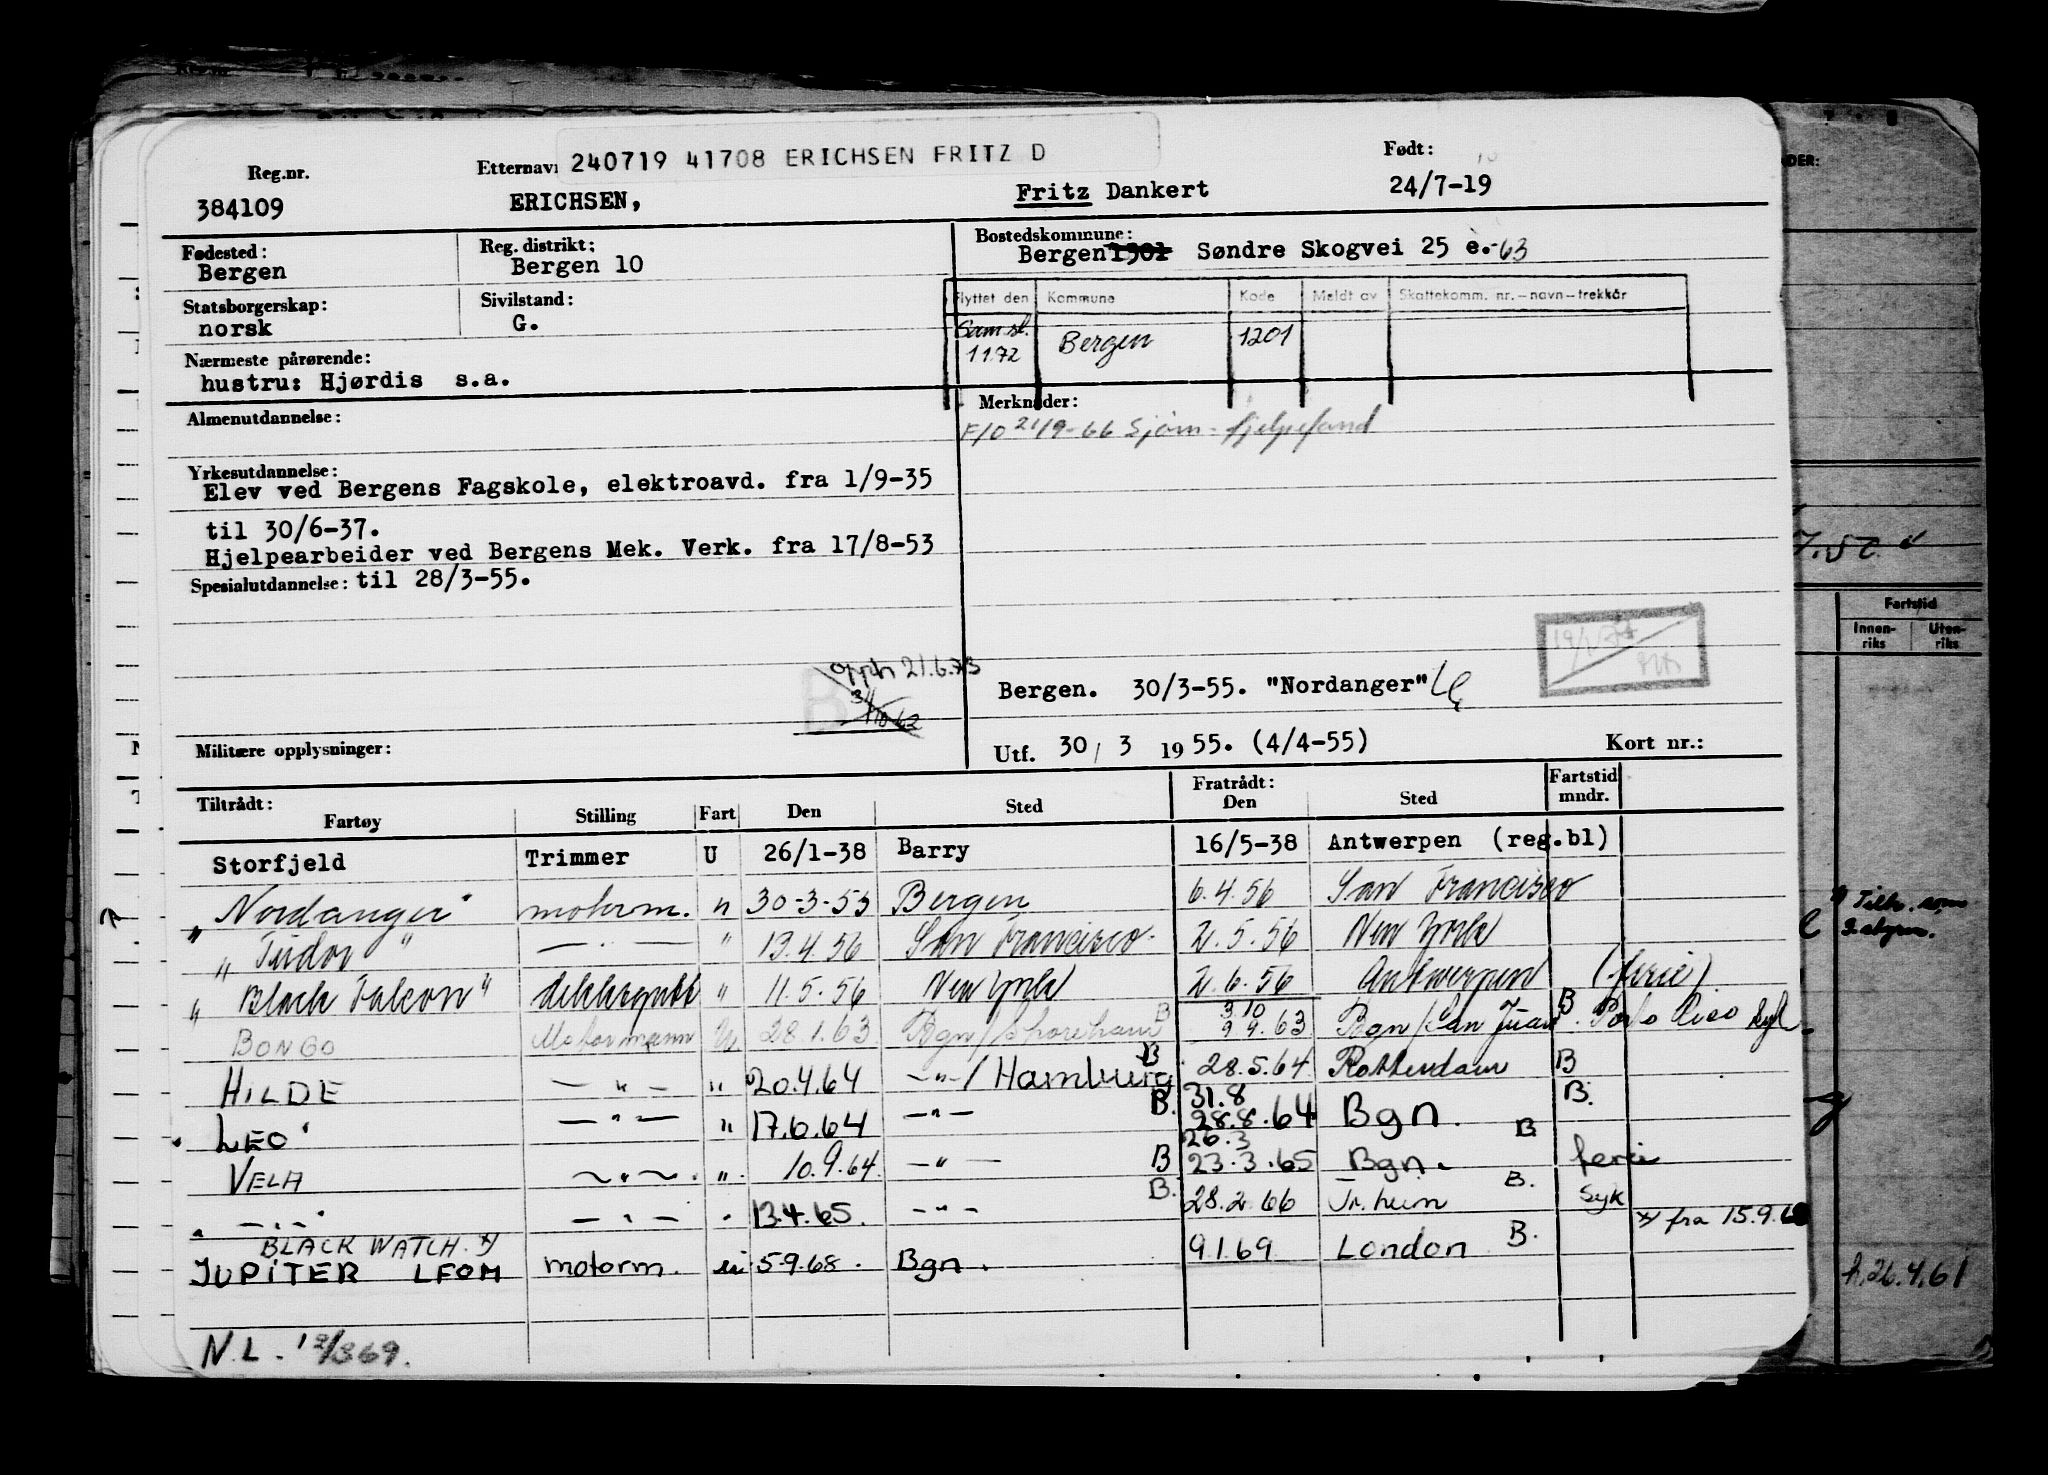 240719 41708 ERICHSEN FRITZ D
Reg.nr. Etternavn Født:
384109 ERICHSEN, Fritz Dankert 24/7-19
Fødested: Reg. distrikt: Bostedskommune:
Bergen Bergen 10 Bergen 1301 Søndre Skogvei 25 e.-63
Statsborgerskap: Sivilstand:
norsk G.
Flyttet den Kommune Kode Meldt av Skattekomm. nr.—navn—trekkår
Saml.
1172 Bergen 1201
Nærmeste pårørende:
hustru: Hjørdis s.a.
Almenutdannelse: Merknader:
F/O 21/9-66 Sjøm-hjelpefond
Yrkesutdannelse:
Elev ved Bergens Fagskole, elektroavd. fra 1/9-35
til 30/6-37.
Hjelpearbeider ved Bergens Mek. Verk. fra 17/8-53
Spesialutdannelse: til 28/3-55.
opph 21.6.73
B
Bergen. 30/3-55. "Nordanger"
Militære opplysninger: Utf. 30/ 3 1955. (4/4-55) Kort nr.:
Tiltrådt: Fratrådt: Fartstid
Fartøy Stilling Fart Den Sted Den Sted mndr.
Storfjeld Trimmer U 26/1-38 Barry 16/5-38 Antwerpen (reg.bl)
"Nordanger" motorm. " 30-3-55 Bergen 6.4.56 San Francisco
"Tudor" — . — " 13.4.56 San Francisco 2.5.56 New York
"Black Falcon" dekksgutt " 11.5.56 New York 2.6.56 Antwerpen (ferie)
BONGO Motormann U. 28.1.63 Bgn/Shoreham B 3.10 9.9.63 Bgn/San Juan B. Porto Rico syk
HILDE — " — " 20.4.64 —"—/Hamburg B 28.5.64 Rotterdam B
LEO — " — " 17.6.64 —"— B. 31.8 28.8.64 Bgn. B.
VELA — " — " 10.9.64. —"— B 26.3 23.3.65 Bgn. B ferie
— " — — " — " 13.4.65. —"— B. 28.2.66 Tr.heim B. Syk
BLACK WATCH x) x) fra 15.9.68
JUPITER LEOM motorm. 5.9.68. Bgn. 9.1.69 London B.
N.L. 12/369.
Fartstid
Innen-
riks
Uten-
riks
h.26.4.61